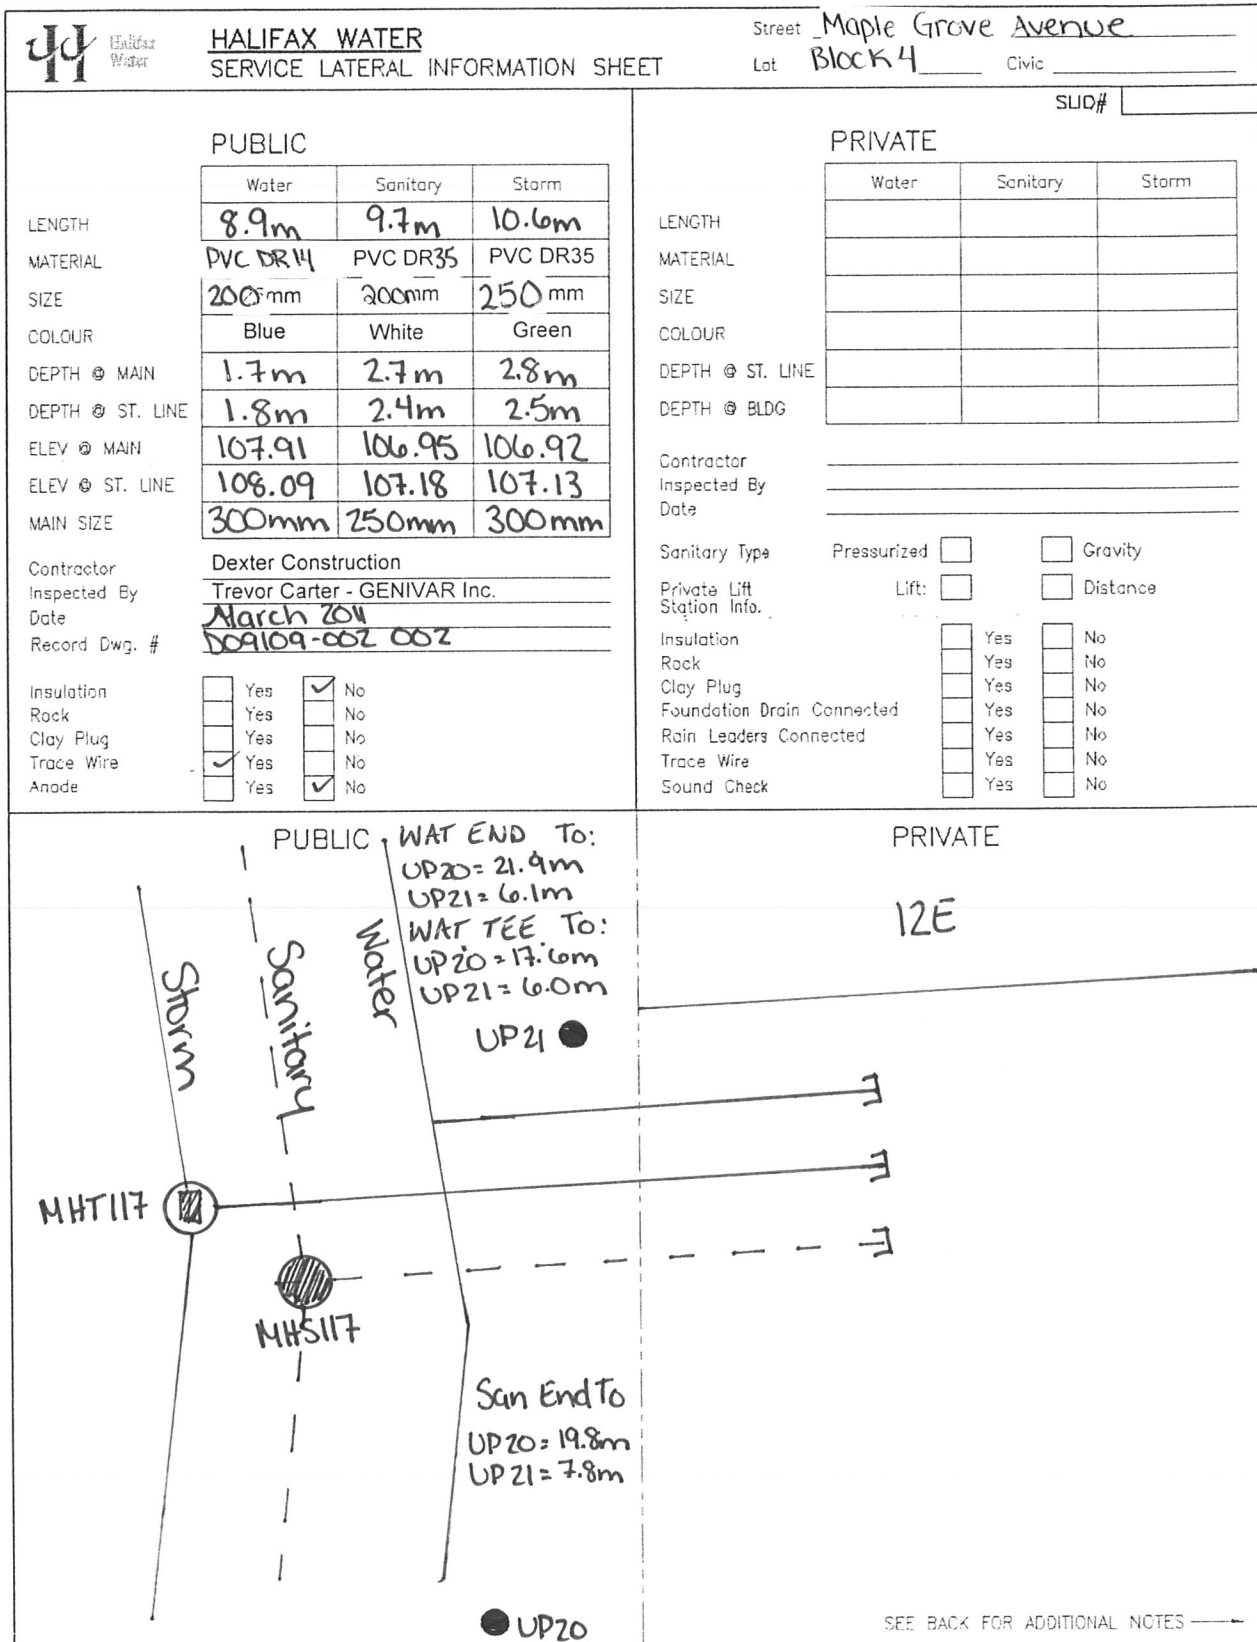 Halifax Water
HALIFAX WATER
SERVICE LATERAL INFORMATION SHEET
Street Maple Grove Avenue
Lot Block 4 Civic
SLID#
PUBLIC
Water Sanitary Storm
LENGTH 8.9m 9.7m 10.6m
MATERIAL PVC DR14 PVC DR35 PVC DR35
SIZE 200mm 200mm 250mm
COLOUR Blue White Green
DEPTH @ MAIN 1.7m 2.7m 2.8m
DEPTH @ ST. LINE 1.8m 2.4m 2.5m
ELEV @ MAIN 107.91 106.95 106.92
ELEV @ ST. LINE 108.09 107.18 107.13
MAIN SIZE 300mm 250mm 300mm
Contractor Dexter Construction
Inspected By Trevor Carter - GENIVAR Inc.
Date March 2011
Record Dwg. # D09109-002 002
Insulation Yes ✓ No
Rock Yes No
Clay Plug Yes No
Trace Wire ✓ Yes No
Anode Yes ✓ No
PRIVATE
Water Sanitary Storm
LENGTH
MATERIAL
SIZE
COLOUR
DEPTH @ ST. LINE
DEPTH @ BLDG
Contractor
Inspected By
Date
Sanitary Type Pressurized Gravity
Private Lift Lift: Distance
Station Info.
Insulation Yes No
Rock Yes No
Clay Plug Yes No
Foundation Drain Connected Yes No
Rain Leaders Connected Yes No
Trace Wire Yes No
Sound Check Yes No
PUBLIC
WAT END TO:
UP20= 21.9m
UP21= 6.1m
WAT TEE TO:
UP20= 17.6m
UP21= 6.0m
Storm
Sanitary
Water
UP21
MHT117
MHS117
San End To
UP20= 19.8m
UP21= 7.8m
UP20
PRIVATE
12E
SEE BACK FOR ADDITIONAL NOTES